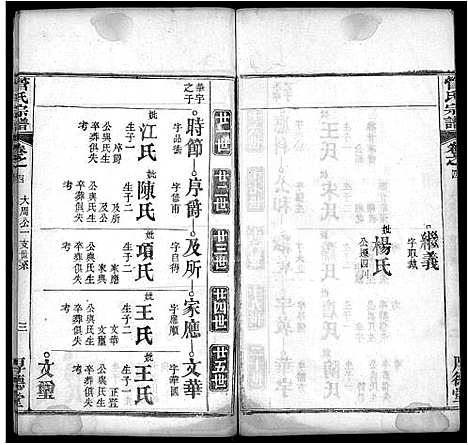 管氏宗譜
卷之四
繼義
字取裁
妣楊氏
公遷四川
廿一世
廿二世
廿三世
廿四世
廿五世
華宇之子
時節
字品金
妣江氏
生子一
序爵
公與氏生卒葬俱失考
序爵
字僖甫
妣陳氏
生子二
及所
及公
公與氏生卒葬俱失考
及所
字自得
妣項氏
生子二
家應
公與氏生卒葬俱失考
家應
妣王氏
生子二
文華
文璽
公與氏生卒葬俱失考
文華
字華國
妣王氏
生子二
公與氏生卒葬俱失考
文璽
管氏宗譜
卷之四
大周公一支世系
三
厚德堂